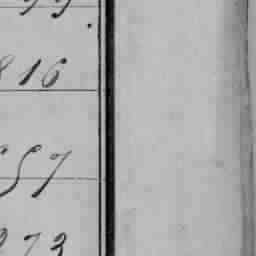 99
816
557
273